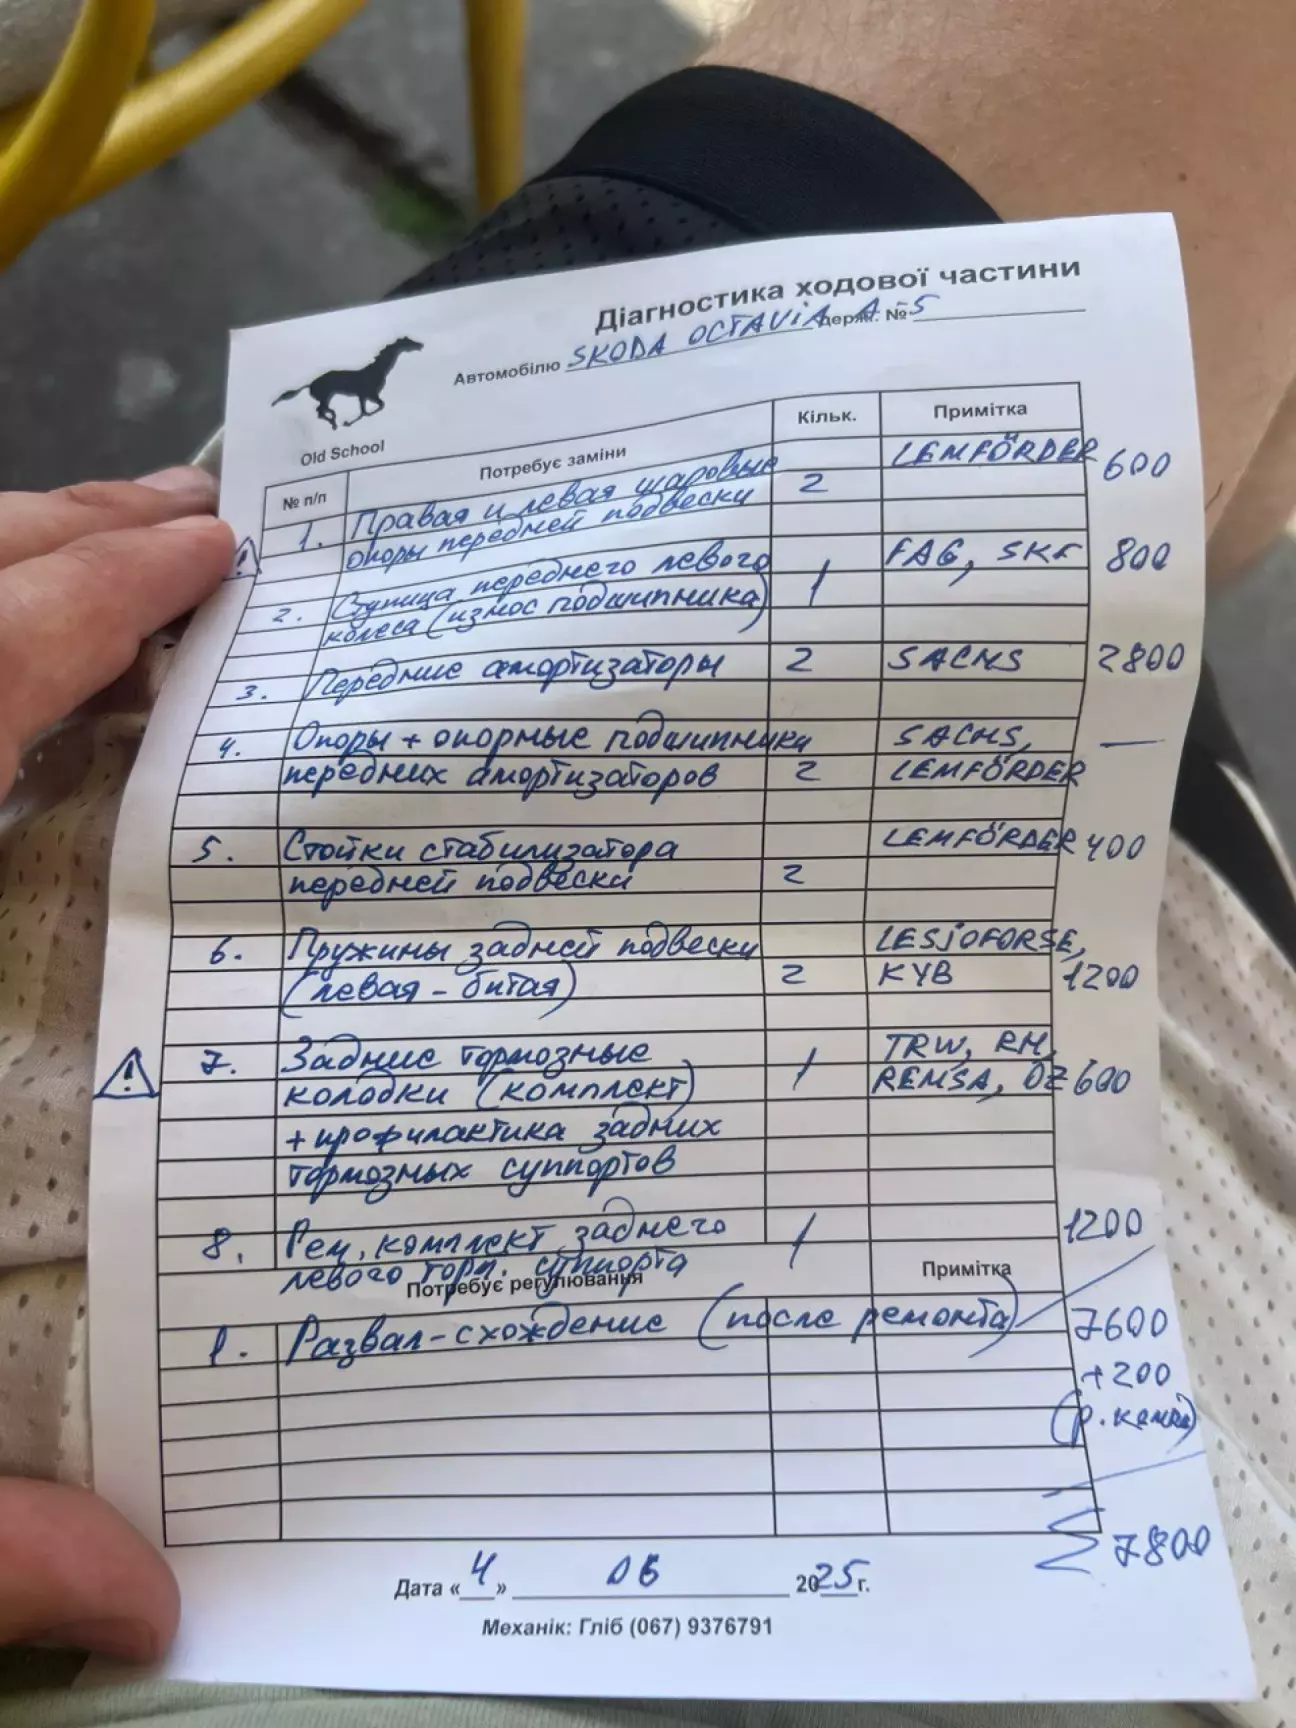 Діагностика ходової частини
Автомобілю SKODA OCTAVIA A 5 держ. №
Old School
№ п/п Потребує заміни Кільк. Примітка
1. Правая и левая шаровые LEMFÖRDER 600
опоры передней подвески 2
2. Ступица переднего левого FAG, SKF 800
колеса (износ подшипника) 1
3. Передние амортизаторы 2 SACHS 2800
4. Опоры + опорные подшипники SACHS, —
передних амортизаторов 2 LEMFÖRDER
5. Стойки стабилизатора LEMFÖRDER 400
передней подвески 2
6. Пружины задней подвески LESJOFORSE,
(левая - битая) 2 KYB 1200
7. Задние тормозные 1 TRW, RH,
колодки (комплект) REMSA, ÖZ 600
+ профилактика задних
тормозных суппортов
8. Рем. комплект заднего 1 1200
левого торм. суппорта
Потребує регулювання Примітка
1. Развал-схождение (после ремонта) 7600
+200
7800
Дата «4» 06 2025г.
Механік: Гліб (067) 9376791